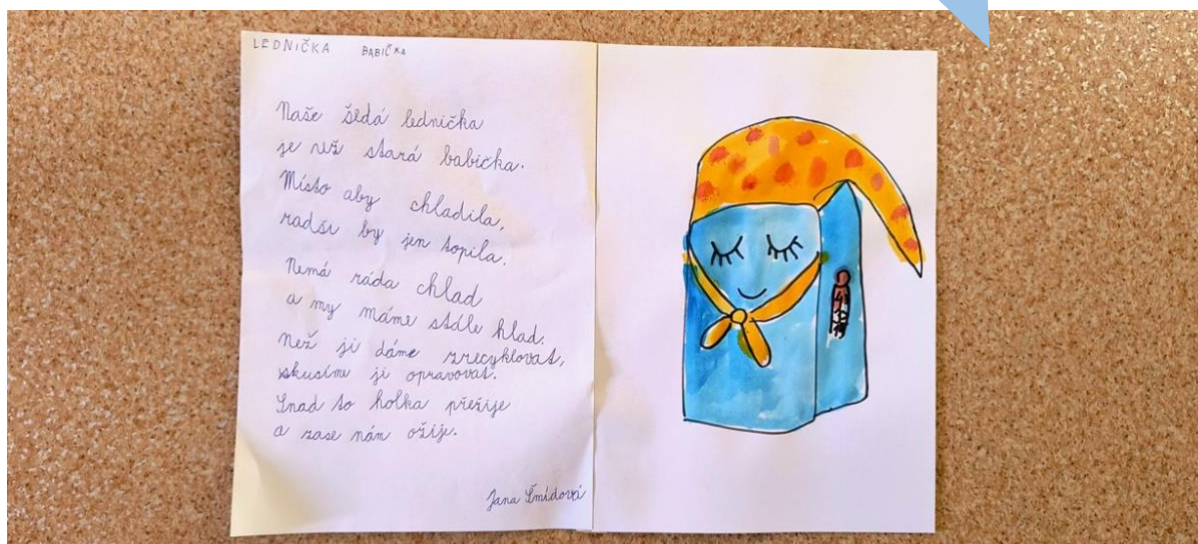 LEDNIČKA BABIČKA
Naše šedá lednička
je než stará babička.
Místo aby chladila,
radši by jen topila.
Nemá ráda chlad
a my máme stále hlad.
Než ji dáme zrecyklovat,
skusíme ji opravovat.
Snad to holka přežije
a zase nám ožije.
Jana Šmídová